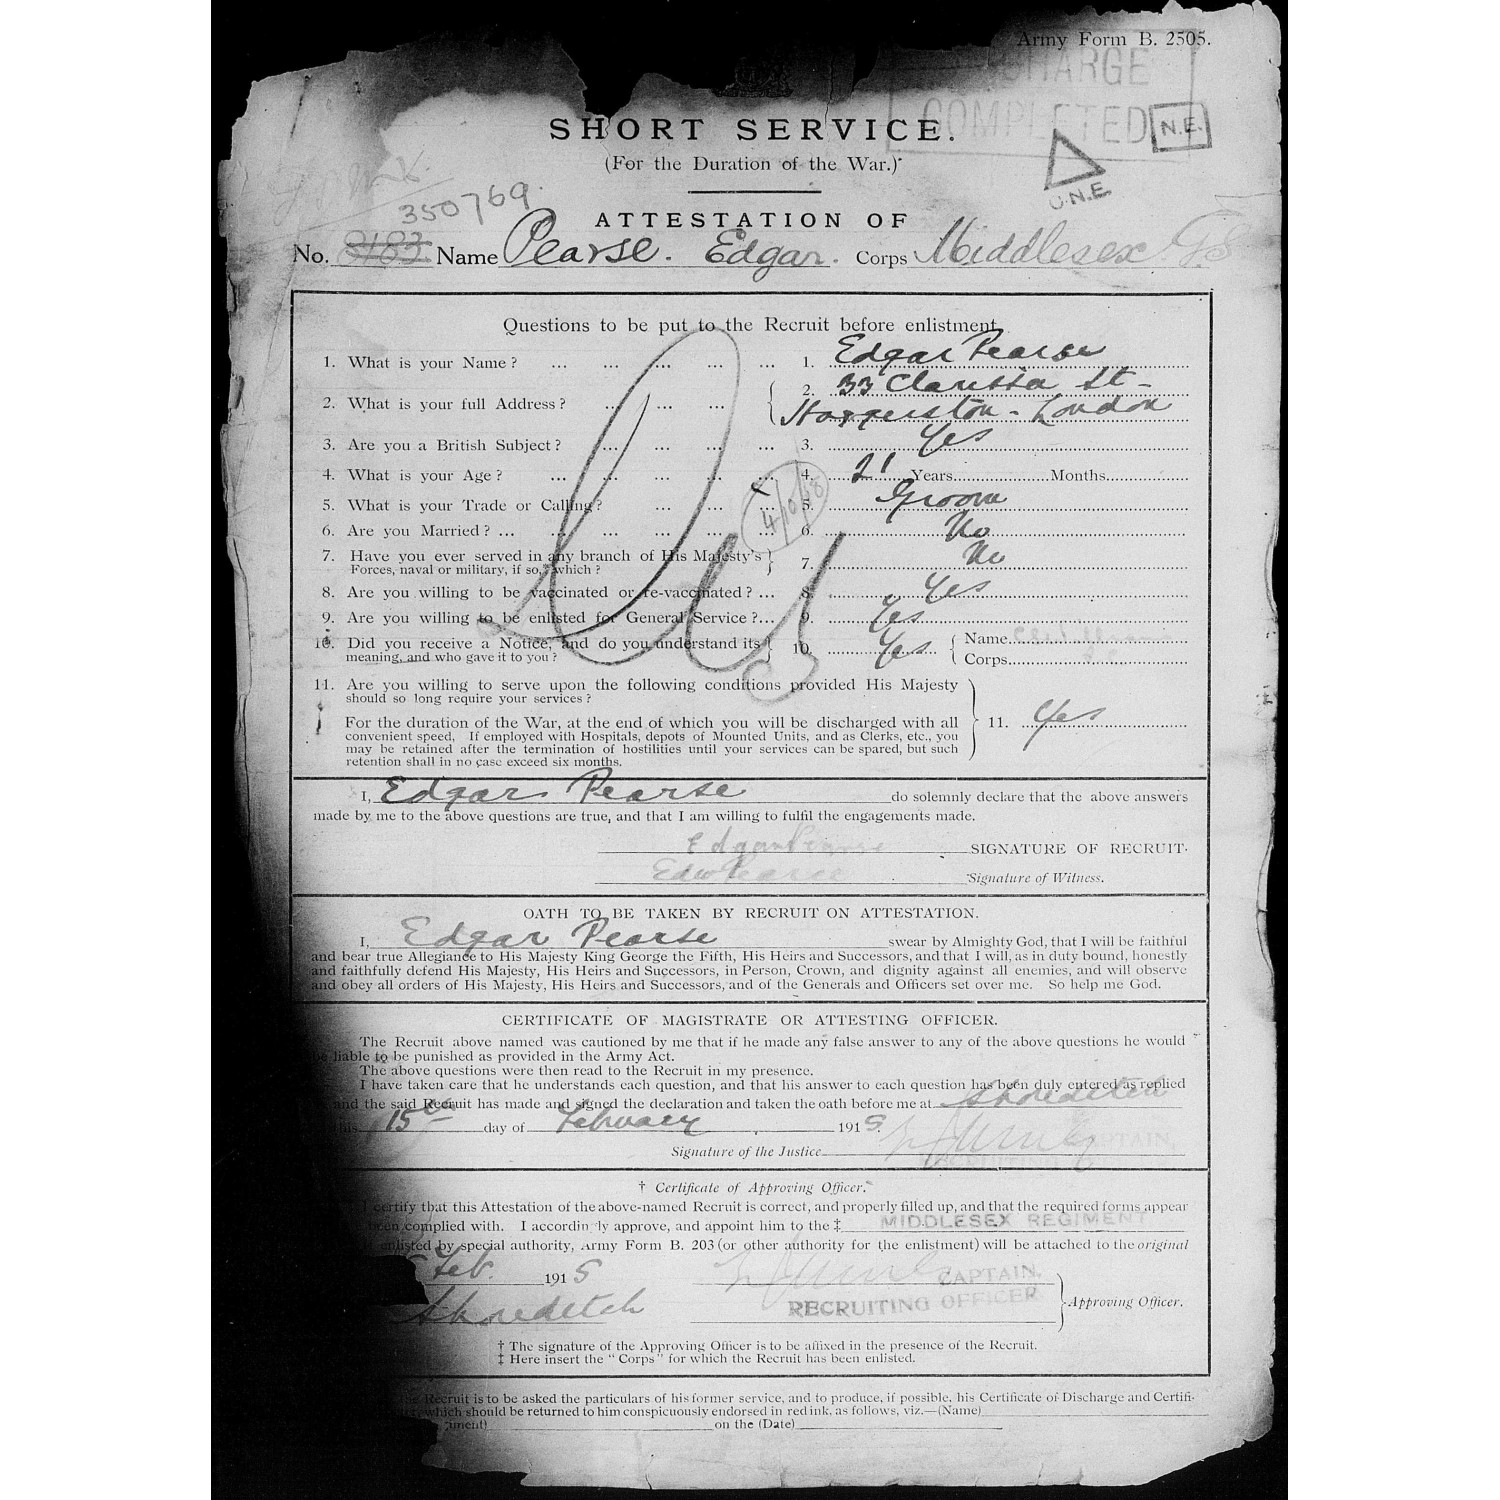 Army Form B. 2505.
DISCHARGE
COMPLETED
N.E.
U.N.E.
SHORT SERVICE.
(For the Duration of the War.)
350769.
ATTESTATION OF
No. Name Pearse. Edgar. Corps Middlesex G.S
Questions to be put to the Recruit before enlistment.
1. What is your Name? ... ... ... ... ... 1. Edgar Pearse
2. What is your full Address? ... ... ... 2. 33 Clarissa St-
Haggerston - London
3. Are you a British Subject? ... ... ... ... 3. Yes
4. What is your Age? ... ... ... ... ... 4. 21 Years Months
4/10/18
5. What is your Trade or Calling? ... ... ... 5. Groom
6. Are you Married? ... ... ... ... ... ... 6. No
7. Have you ever served in any branch of His Majesty's 7. No
Forces, naval or military, if so, which?
8. Are you willing to be vaccinated or re-vaccinated? ... 8. Yes
9. Are you willing to be enlisted for General Service? ... 9. Yes
10. Did you receive a Notice, and do you understand its 10. Yes Name
meaning, and who gave it to you? Corps
11. Are you willing to serve upon the following conditions provided His Majesty
should so long require your services?
For the duration of the War, at the end of which you will be discharged with all 11. Yes
convenient speed, If employed with Hospitals, depots of Mounted Units, and as Clerks, etc., you
may be retained after the termination of hostilities until your services can be spared, but such
retention shall in no case exceed six months.
I, Edgar Pearse do solemnly declare that the above answers
made by me to the above questions are true, and that I am willing to fulfil the engagements made.
Edgar Pearse SIGNATURE OF RECRUIT.
Signature of Witness.
OATH TO BE TAKEN BY RECRUIT ON ATTESTATION.
I, Edgar Pearse swear by Almighty God, that I will be faithful
and bear true Allegiance to His Majesty King George the Fifth, His Heirs and Successors, and that I will, as in duty bound, honestly
and faithfully defend His Majesty, His Heirs and Successors, in Person, Crown, and dignity against all enemies, and will observe
and obey all orders of His Majesty, His Heirs and Successors, and of the Generals and Officers set over me. So help me God.
CERTIFICATE OF MAGISTRATE OR ATTESTING OFFICER.
The Recruit above named was cautioned by me that if he made any false answer to any of the above questions he would
be liable to be punished as provided in the Army Act.
The above questions were then read to the Recruit in my presence.
I have taken care that he understands each question, and that his answer to each question has been duly entered as replied
and the said Recruit has made and signed the declaration and taken the oath before me at Shoreditch
this 15th day of February 1915
Signature of the Justice CAPTAIN,
† Certificate of Approving Officer.
I certify that this Attestation of the above-named Recruit is correct, and properly filled up, and that the required forms appear
been complied with. I accordingly approve, and appoint him to the ‡ MIDDLESEX REGIMENT
enlisted by special authority, Army Form B. 203 (or other authority for the enlistment) will be attached to the original
Feb. 1915
CAPTAIN,
Shoreditch RECRUITING OFFICER Approving Officer.
† The signature of the Approving Officer is to be affixed in the presence of the Recruit.
‡ Here insert the "Corps" for which the Recruit has been enlisted.
Recruit is to be asked the particulars of his former service, and to produce, if possible, his Certificate of Discharge and Certifi-
which should be returned to him conspicuously endorsed in red ink, as follows, viz.—(Name)
on the (Date)